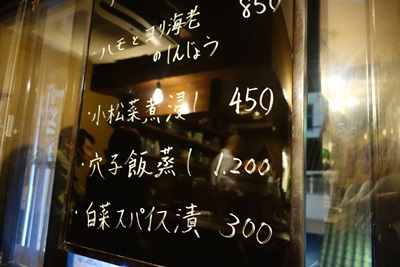 850
・ハモとヨリ海老
のしんじょう
・小松菜煮浸し 450
・穴子飯蒸し 1.200
・白菜スパイス漬 300